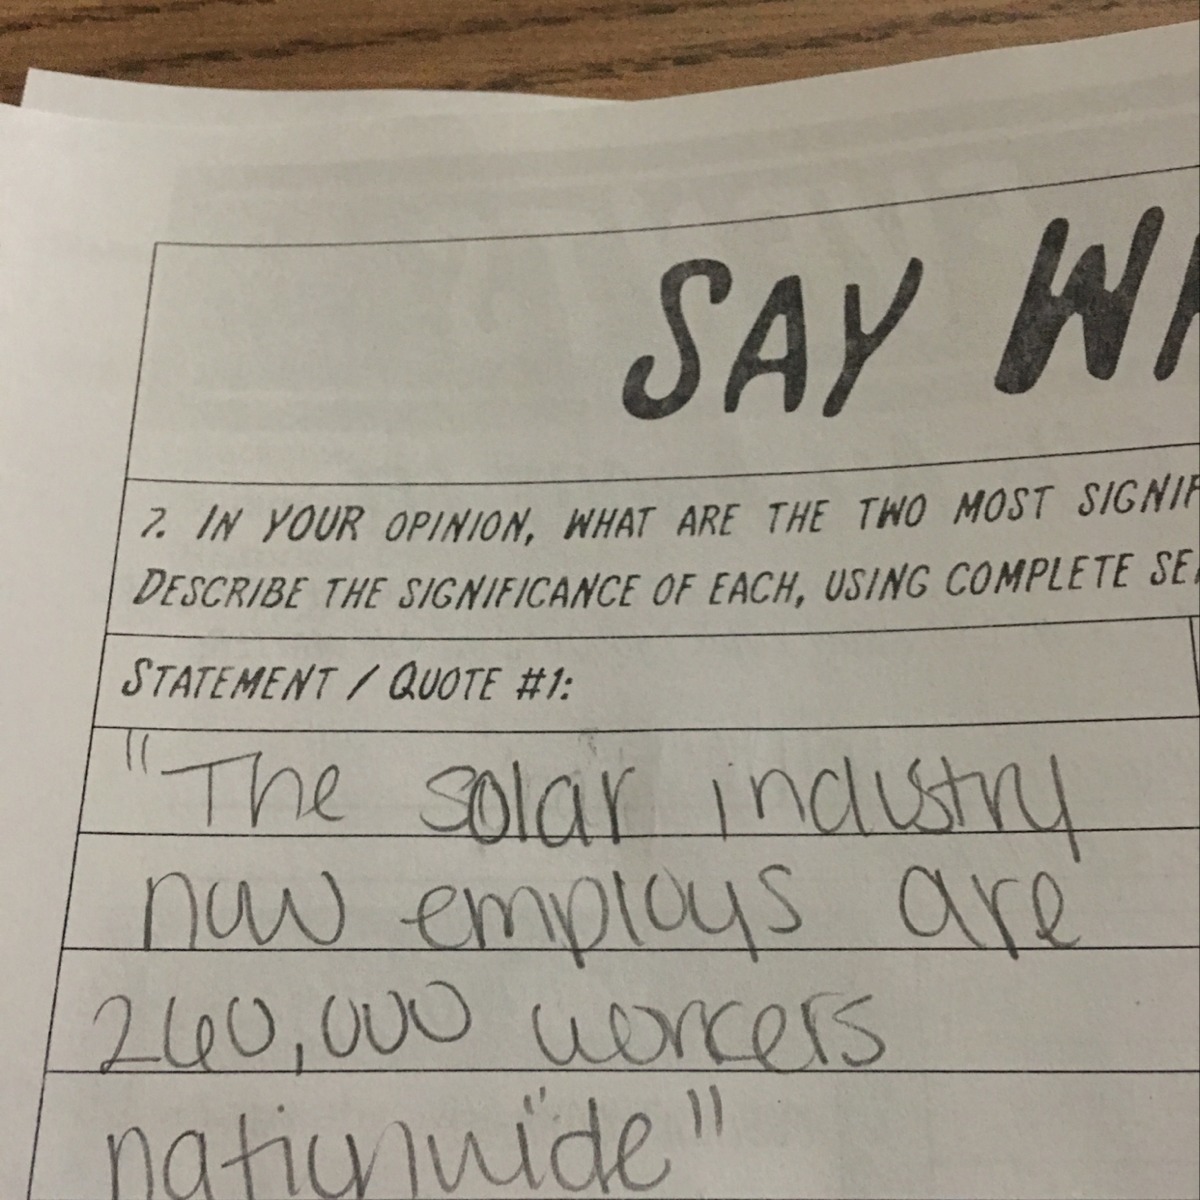 SAY W
7. IN YOUR OPINION, WHAT ARE THE TWO MOST SIGNIF
DESCRIBE THE SIGNIFICANCE OF EACH, USING COMPLETE SE
STATEMENT / QUOTE #1:
"The solar industry
now employs are
260,000 workers
nationwide"